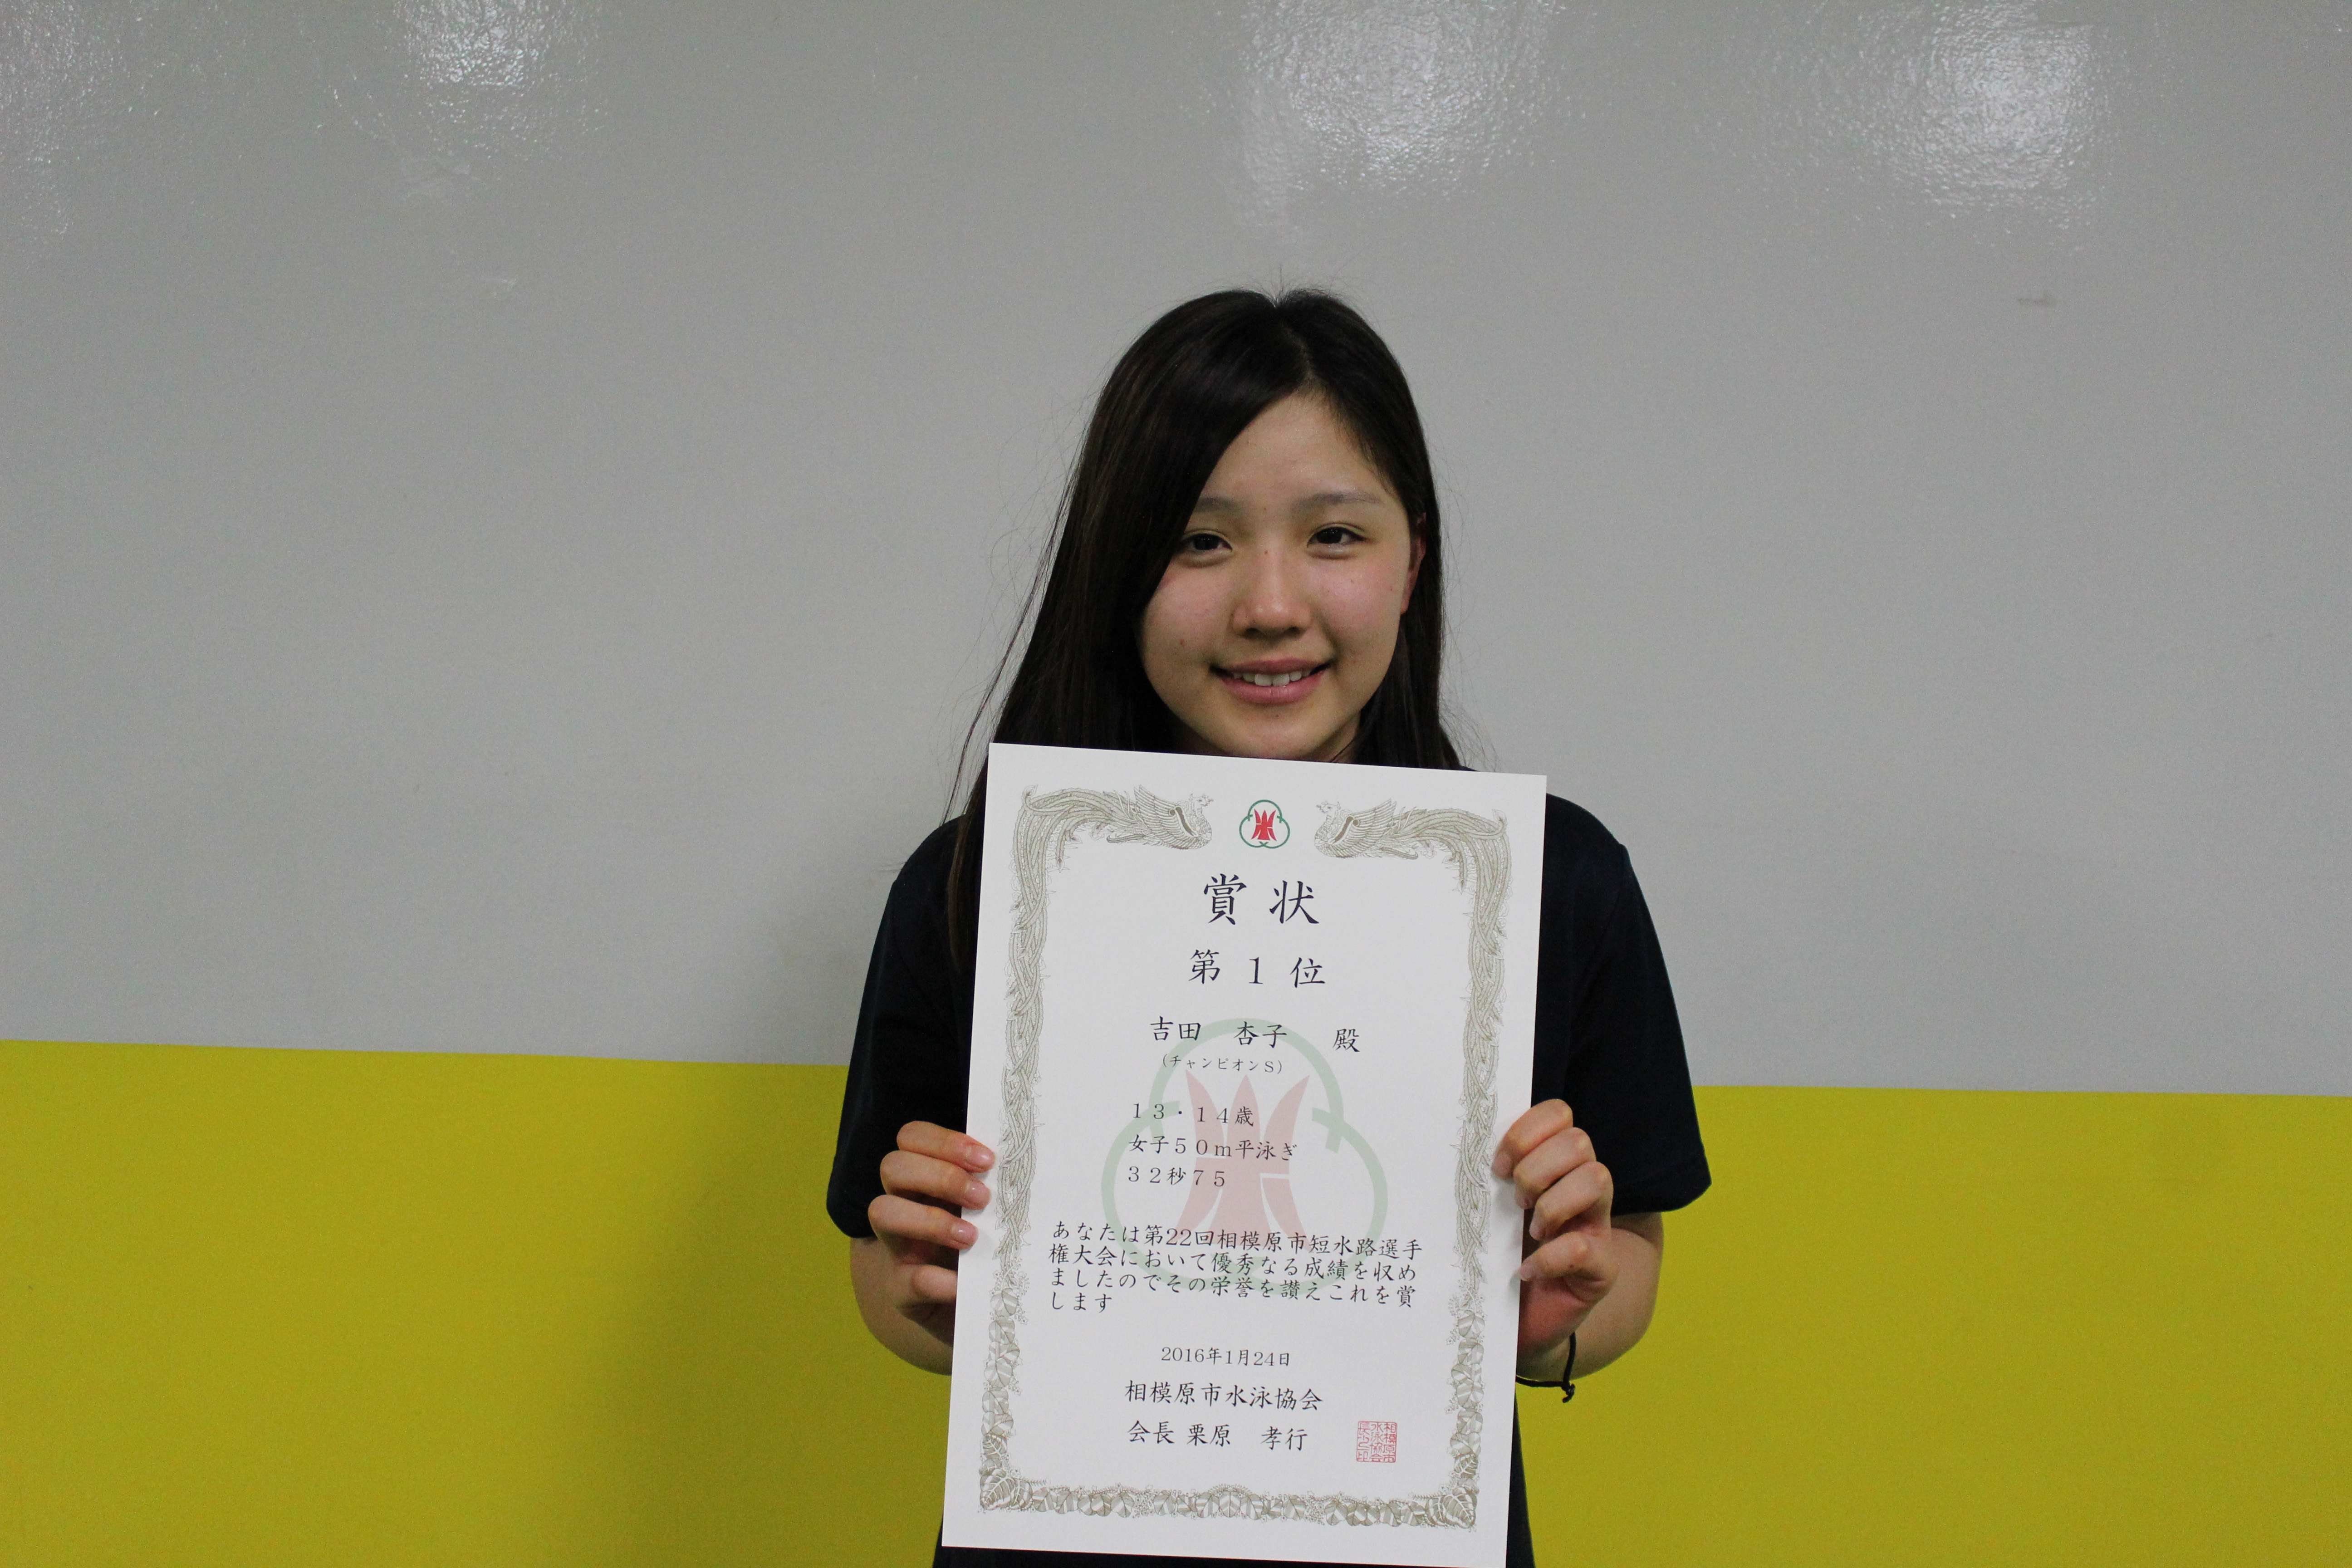 賞状
第1位
吉田 杏子 殿
(チャンピオンS)
13・14歳
女子50m平泳ぎ
32秒75
あなたは第22回相模原市短水路選手
権大会において優秀なる成績を収め
ましたのでその栄誉を讃えこれを賞
します
2016年1月24日
相模原市水泳協会
会長 栗原 孝行